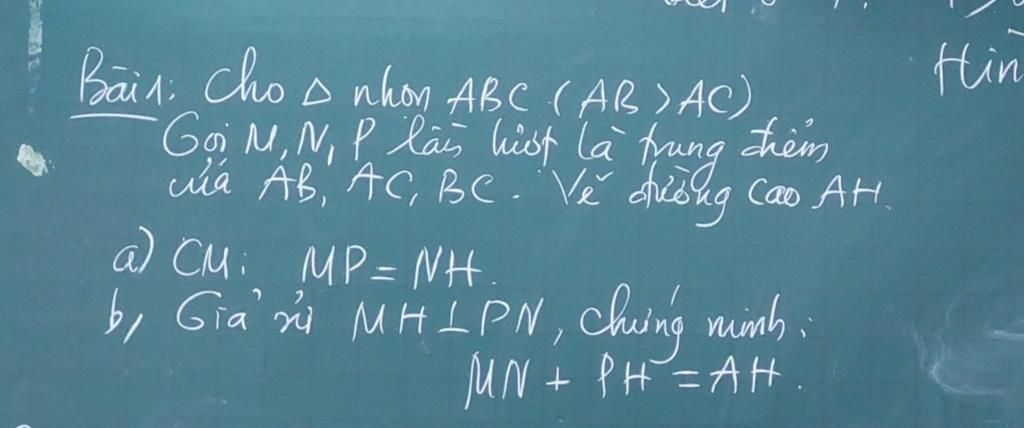 Hìn
Bài 1: Cho △ nhọn ABC (AB > AC)
Gọi M, N, P lần lượt là trung điểm
của AB, AC, BC. Vẽ đường cao AH.
a) CM: MP = NH.
b, Giả sử MH ⊥ PN, chứng minh:
MN + PH = AH.